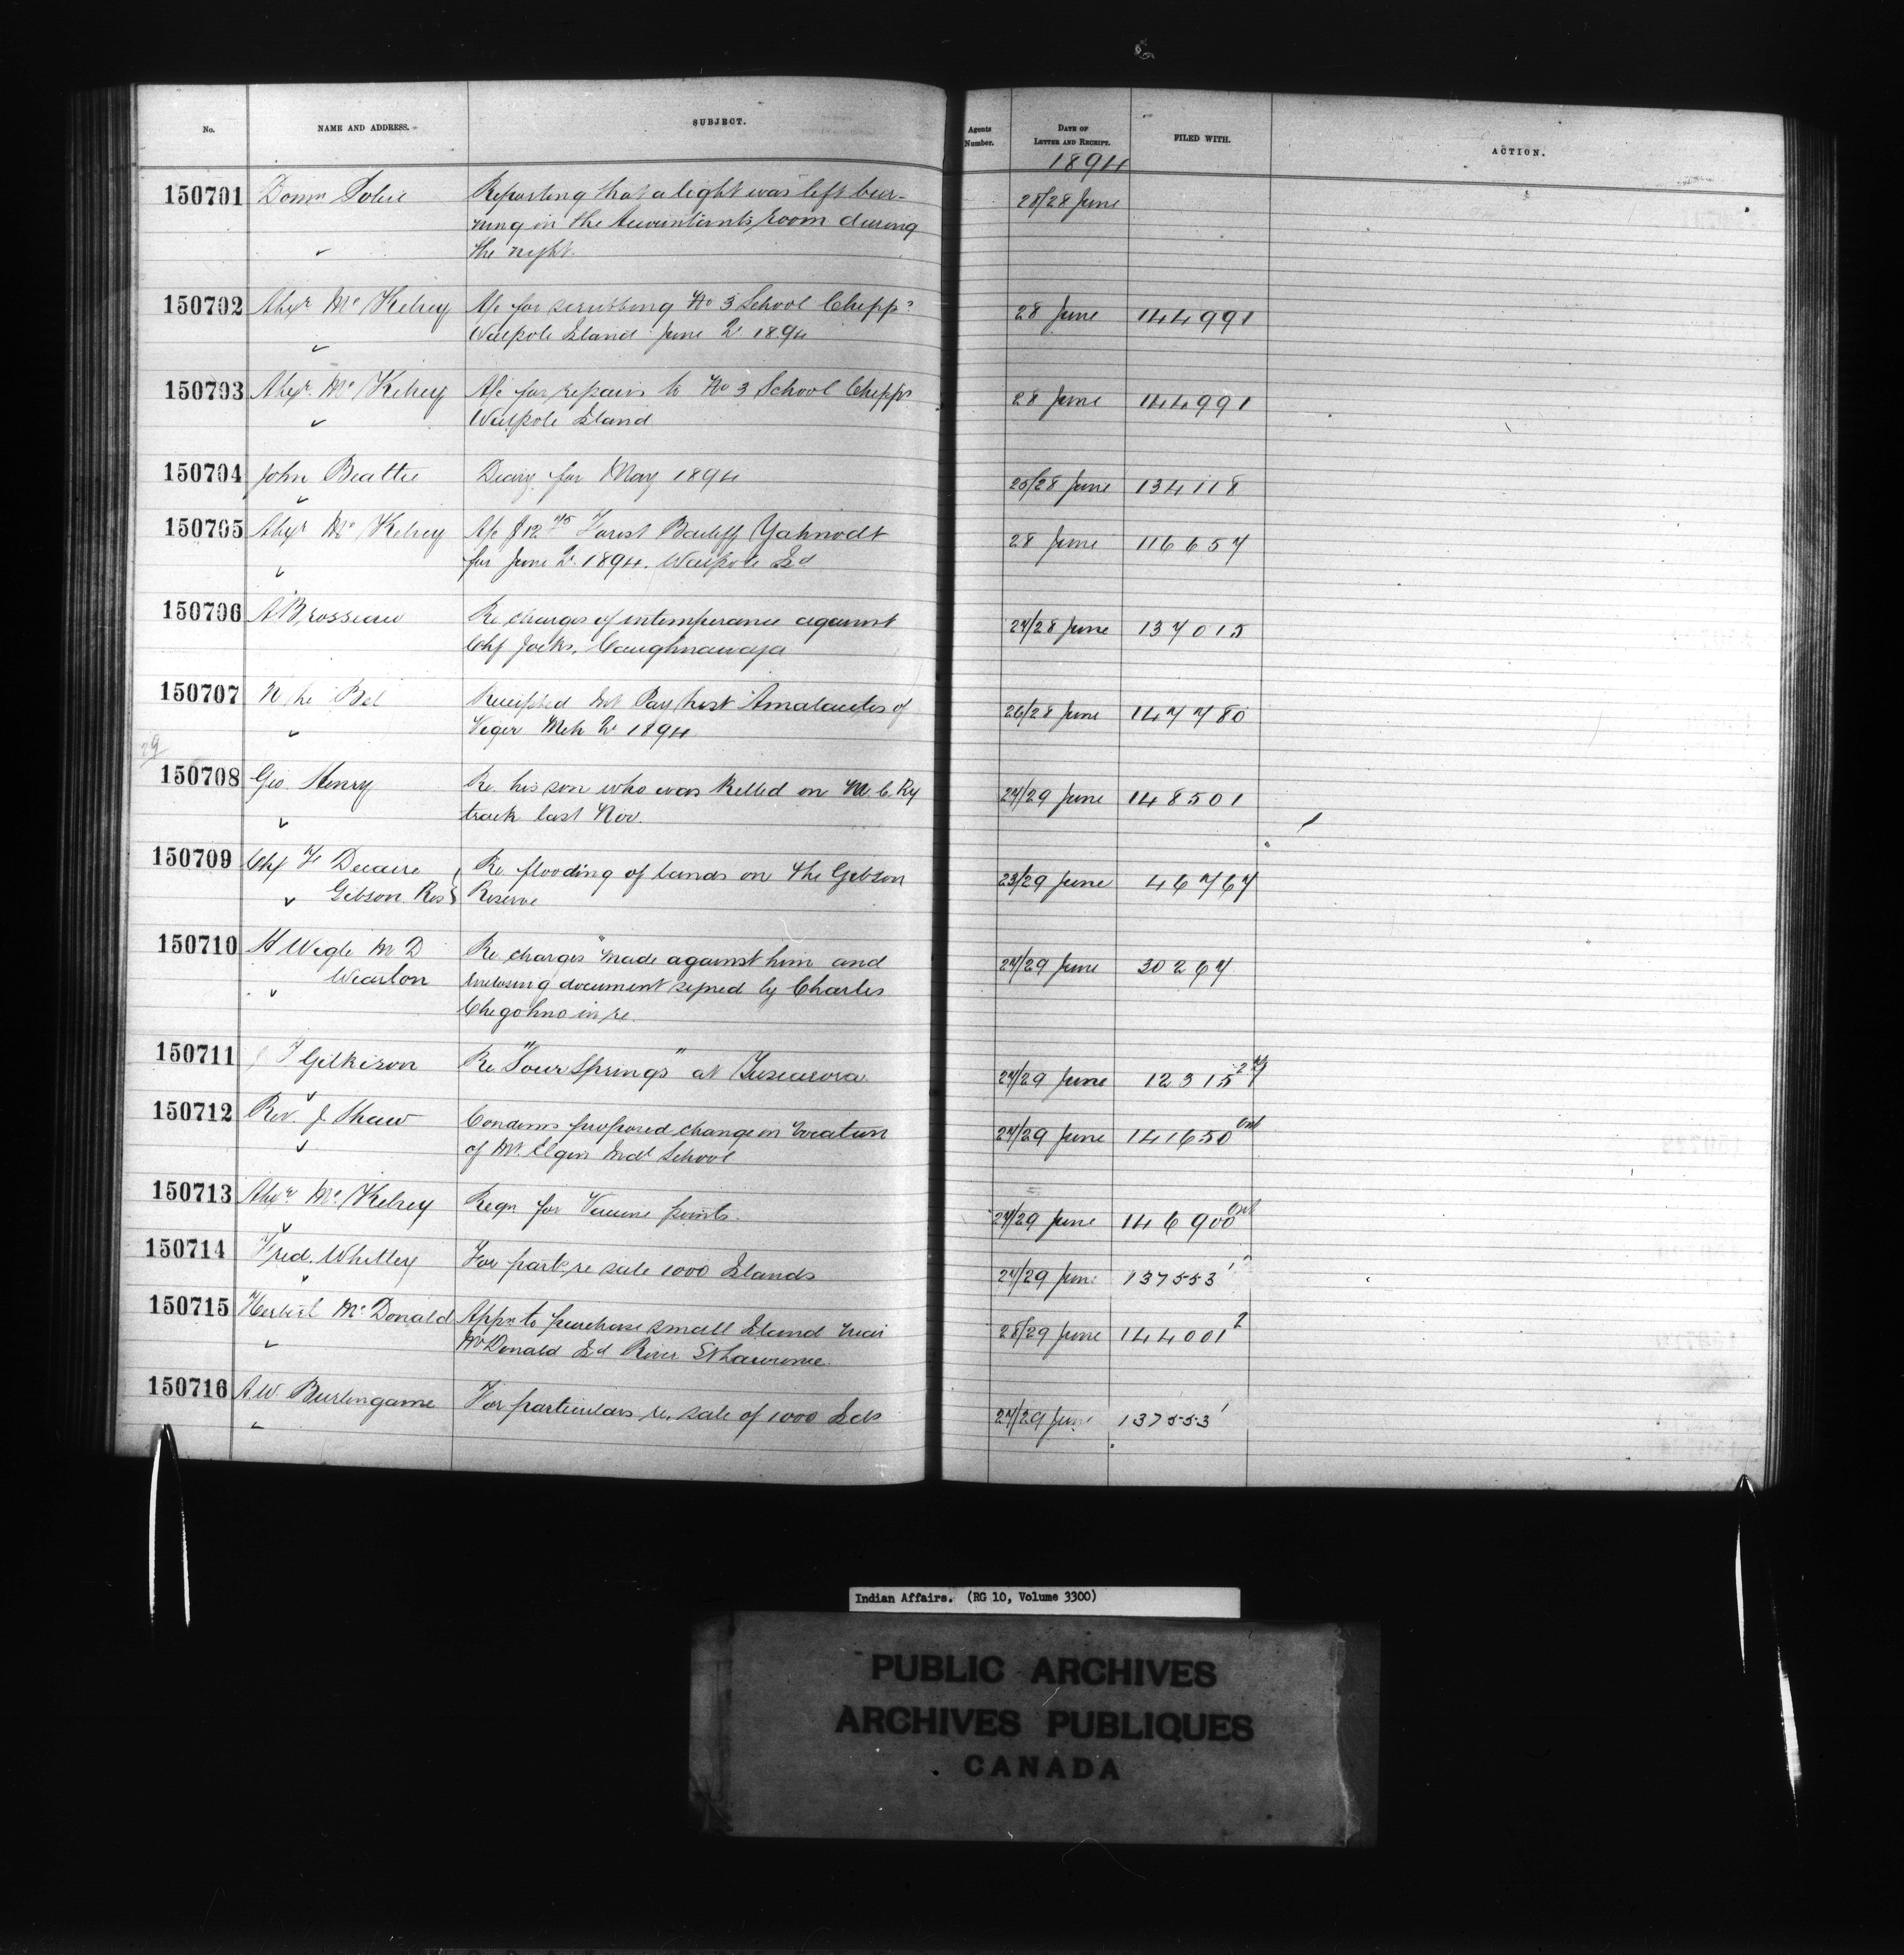 No. NAME AND ADDRESS. SUBJECT. Agents Number. DATE OF LETTER AND RECEIPT. FILED WITH. ACTION.
1894
150701 Domn Police Reporting that a light was left bur- 28/28 June
ning in the Accountants room during
the night.
150702 Alexr McKelvey A/c for scrubbing No 3 School Chipps 28 June 144991
Walpole Island June Qr 1894
150703 Alexr McKelvey A/c for repairs to No 3 School Chipps 28 June 144991
Walpole Island
150704 John Beattie Diary for May 1894 25/28 June 134118
150705 Alexr McKelvey A/c $12 75 Forest Bailiff Yahnodt 28 June 116657
for June Qr 1894. Walpole Id
150706 A Brosseau Re charges of intemperance against 27/28 June 137015
Chf Jocks, Caughnawaga
150707 Receipted Int Pay list Amalacites of 26/28 June 147780
Viger Mch Qr 1894
29
150708 Geo. Henry Re his son who was killed on M. C. Ry 27/29 June 148501
track last Nov.
150709 Chf F Decaire Re flooding of lands on the Gibson 23/29 June 46767
Gibson Res Reserve
150710 H Wigle M D Re charges made against him and 27/29 June 30267
Wiarton enclosing document signed by Charles
Chegohno in re.
150711 J T Gilkison Re "Sour Springs" at Tuscarora. 27/29 June 12315
150712 Rev. J. Shaw Condemns proposed change in location 27/29 June 141650 Ont
of Mt. Elgin Indl School
150713 Alexr McKelvey Reqn for Vaccine points. 27/29 June 146900 Ont
150714 Fred. Whitley For parts re sale 1000 Islands 27/29 June 137553 1
150715 Herbert McDonald Appn to purchase small Island near 28/29 June 144001 2
McDonald Id River St Lawrence.
150716 A.W. Burlingame For particulars re, sale of 1000 Ids 27/29 June 137553 1
Indian Affairs. (RG 10, Volume 3300)
PUBLIC ARCHIVES
ARCHIVES PUBLIQUES
CANADA